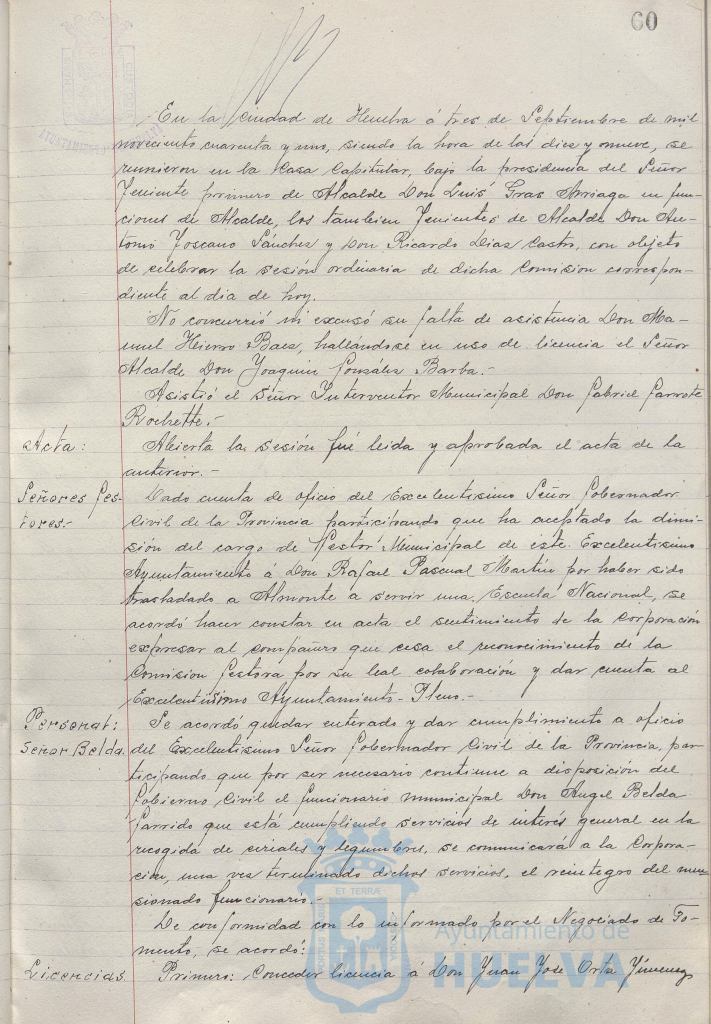 60
En la ciudad de Huelva á tres de Septiembre de mil
novecientos cuarenta y uno, siendo la hora de las diez y nueve, se
reunieron en la Casa Capitular, bajo la presidencia del Señor
Teniente primero de Alcalde Don Luis Gras Arriaga en fun-
ciones de Alcalde, los tambien Tenientes de Alcalde Don An-
tonio Toscano Sánchez y Don Ricardo Dias Castro, con objeto
de celebrar la sesión ordinaria de dicha Comision correspon-
diente al dia de hoy.
No concurrió ni excusó su falta de asistencia Don Ma-
nuel Hierro Baez, hallándose en uso de licencia el Señor
Alcalde Don Joaquin González Barba.-
Asistió el Señor Interventor Municipal Don Gabriel Garrote
Rochette.-
Acta: Abierta la sesión fué leida y aprobada el acta de la
anterior.-
Señores Ges- Dado cuenta de oficio del Excelentisimo Señor Gobernador
tores.- Civil de la Provincia participando que ha aceptado la dimi-
sión del cargo de Gestor Municipal de este Excelentisimo
Ayuntamiento á Don Rafael Pascual Martín por haber sido
trasladado a Almonte a servir una Escuela Nacional, se
acordó hacer constar en acta el sentimiento de la Corporación
expresar al compañero que cesa el reconocimiento de la
Comision Gestora por su leal colaboración y dar cuenta al
Excelentisimo Ayuntamiento-Pleno.-
Personal: Se acordó quedar enterado y dar cumplimiento a oficio
Señor Belda. del Excelentisimo Señor Gobernador Civil de la Provincia, par-
ticipando que por ser necesario continue a disposición del
Gobierno Civil el funcionario municipal Don Angel Belda
Garrido que está cumpliendo servicios de interés general en la
recogida de cereales y legumbres, se comunicará a la Corpora-
ción, una vez terminado dichos servicios, el reintegro del men-
sionado funcionario.-
De conformidad con lo informado por el Negociado de Fo-
mento, se acordó:
Licencias Primero: Conceder licencia á Don Juan Jose Orta Jimenez
Ayuntamiento de
HUELVA